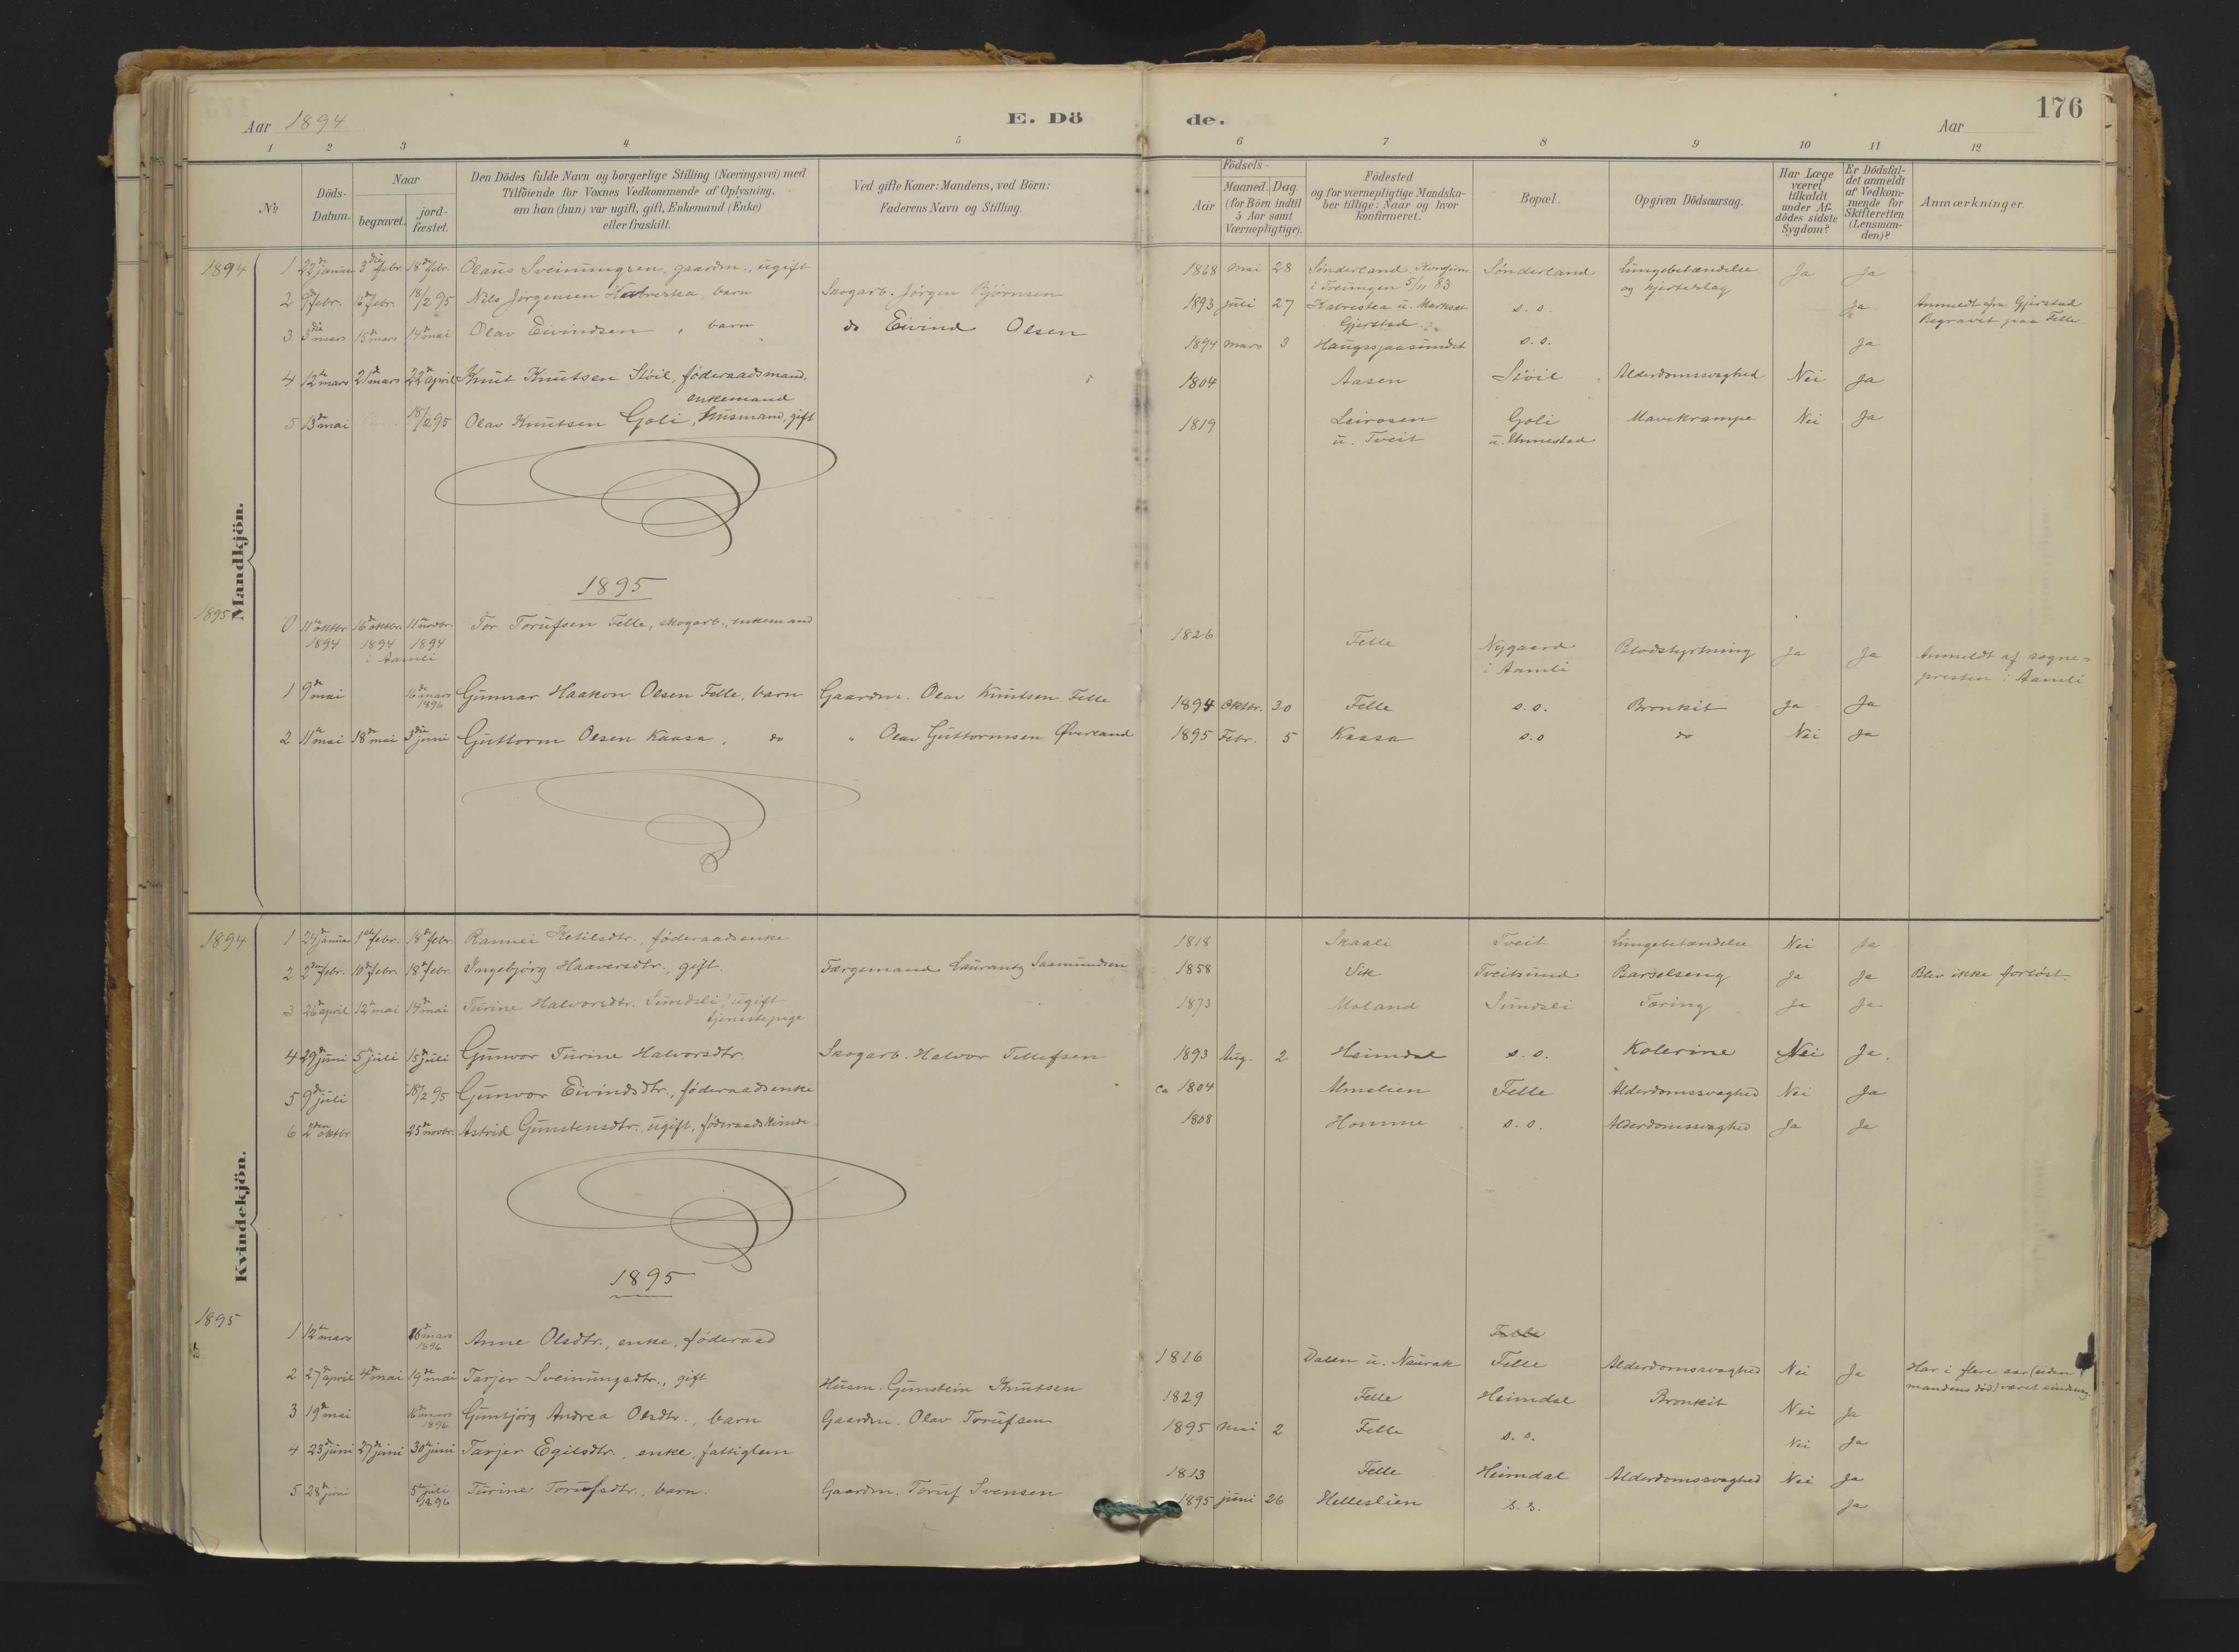 Aar 1894
E. Dö
de.
Aar
176
1 2 3 4 5 6 7 8 9 10 11 12
№
Döds-
Datum.
Naar
begravet.
jord-
fæstet.
Den Dödes fulde Navn og borgerlige Stilling (Næringsvei) med
Tilföiende for Voxnes Vedkommende af Oplysning,
om han (hun) var ugift, gift, Enkemand (Enke)
eller fraskilt.
Ved gifte Koner: Mandens, ved Börn:
Faderens Navn og Stilling.
Födsels-
Aar
Maaned. Dag.
(for Börn indtil
5 Aar samt
Værnepligtige).
Födested
og for værnepligtige Mandska-
ber tillige: Naar og hvor
konfirmeret.
Bopæl.
Opgiven Dödsaarsag.
Har Læge
været
tilkaldt
under Af-
dödes sidste
Sygdom?
Er Dödsfal-
det anmeldt
af Vedkom-
mende for
Skifteretten
(Lensman-
den)?
Anmærkninger.
Mandkjön.
1894
1 22de januar 3die febr. 18de febr. Olaus Sveinungsen, gaardm., ugift 1868 Mai 28 Sönderland, Konfirm. Sönderland Lungebetændelse Ja Ja
i Treungen 5/11 83 og hjerteslag
2 9de febr. 16de febr. 18/2 95 Nils Jörgensen barn Skogarb. Jörgen Björnsen 1893 juli 27 s. s. Ja Anmeldt fra Gjerstad
Gjerstad Begravet paa Felle
3 3die mars 15de mars 14de mai Olav Eivindsen, barn do Eivind Olsen 1894 mars 3 Haugsjaasundet s. s. Ja
4 12te mars 21de mars 22de april Knut Knutsen Stöil, föderaadsmand, 1804 Aasen Stöil Alderdomssvaghed Nei Ja
enkemand
5 13de mai 18/2 95 Olav Knutsen Goli, husmand, gift 1819 Leirosen Goli Mavekrampe Nei Ja
u. Tveit u. Unnestad
1895
1895
0 11te oktbr 16de oktbr. 11te novbr. Tor Torufsen Felle, skogarb., enkemand 1826 Felle Nygaard Blodstyrtning Ja Ja Anmeldt af sogne-
1894 1894 1894 i Aamli presten i Aamli
i Aamli
1 9de mai 16de mars Gunnar Haakon Olsen Felle, barn Gaardm. Olav Knutsen Felle 1894 Oktbr. 30 Felle s. s. Bronkit Ja Ja
1896
2 11te mai 18de mai 3die juni Guttorm Olsen Kaasa, do " Olav Guttormsen Överland 1895 Febr. 5 Kaasa s. s do Nei Ja
Kvindekjön.
1894
1 24de januar 1ste febr. 18de febr. Rannei Ketilsdtr., föderaadsenke 1818 Skaali Tveit Lungebetændelse Nei Ja
2 2den febr. 10de febr. 18de febr. Ingebjörg Haaversdtr., gift. Færgemand Laurantz Saamundsen 1858 Vik Tveitsund Barselseng Ja Ja Blev ikke forlöst.
3 26de april 12te mai 14de mai Turine Halvorsdtr. Sundsli, ugift 1873 Moland Sundsli Tæring Ja Ja
tjenestepige
4 29de juni 5te juli 15de juli Gunvor Turine Halvorsdtr. Skogarb. Halvor Tellefsen 1893 Aug. 2 Heimdal s. s. Kolerine Nei Ja.
5 9de juli 18/2 95 Gunvor Eivindsdtr., föderaadsenke ca 1804 Almelien Felle Alderdomssvaghed Nei Ja
6 2den oktbr 25de novbr. Astrid Gunstensdtr. ugift, föderaadskvinde 1808 Homme s. s. Alderdomssvaghed Ja Ja
1895
1895
1 12te mars 16de mars Anne Olsdtr., enke, föderaad Felle
1896 1816 Dalen u. Naurak Felle Alderdomssvaghed Nei Ja Har i flere aar (siden
mandens död) været sindssyg.
2 27de april 4de mai 19de mai Tarjer Sveinungsdtr., gift Husm. Gunstein Knutsen 1829 Felle Heimdal Bronkit Nei Ja
3 19de mai 16de mars Gunbjörg Andrea Olsdtr., barn Gaardm. Olav Torufsen 1895 Mai 2 Felle s. s. Nei Ja
1896
4 23de juni 27de juni 30te juni Tarjer Egilsdtr., enke, fattiglem 1813 Felle Heimdal Alderdomssvaghed Nei Ja
5 28de juni 5te juli Turine Torufsdtr., barn. Gaardm. Toruf Svensen 1895 juni 26 Helleslien s. s. Ja
1896